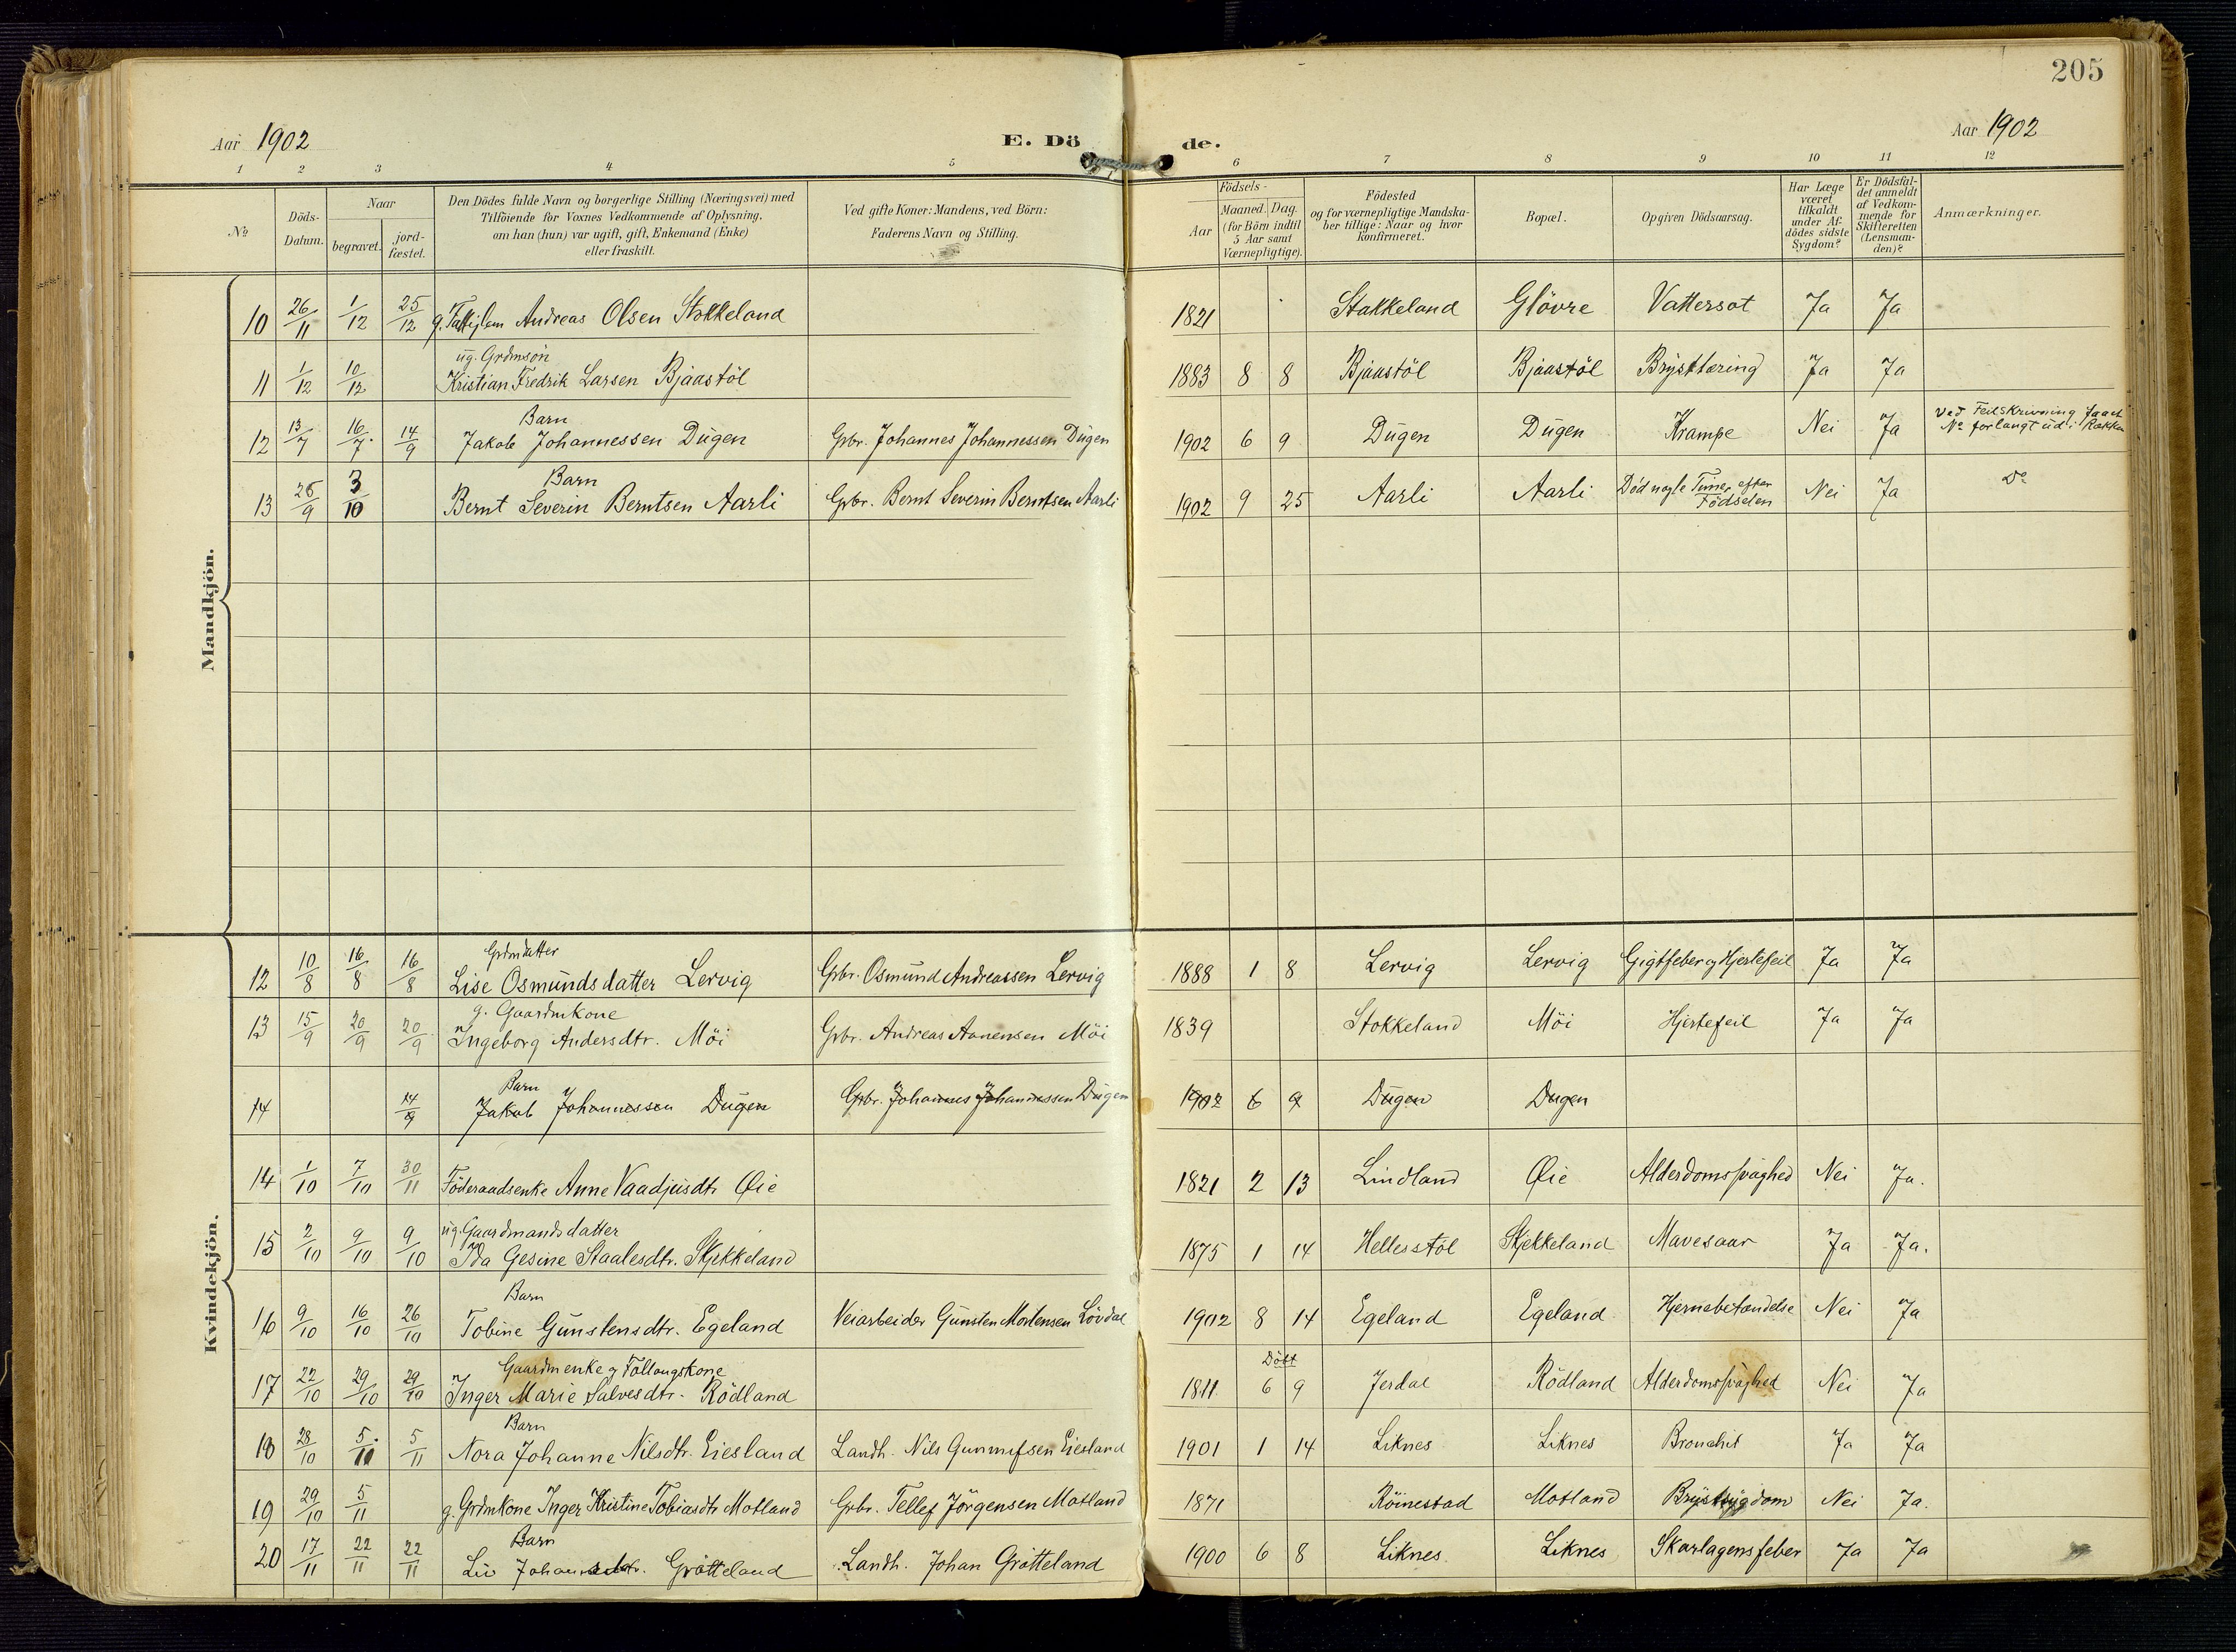 205
Aar 1902
E. Döde.
Aar 1902
1 2 3 4 5 6 7 8 9 10 11 12
No
Döds-Datum.
Naar
begravet.
jord-fæstet.
Den Dödes fulde Navn og borgerlige Stilling (Næringsvei) med
Tilföiende for Voxnes Vedkommende af Oplysning.
om han (hun) var ugift, gift, Enkemand (Enke)
eller fraskilt.
Ved gifte Koner: Mandens, ved Börn:
Faderens Navn og Stilling.
Födsels-
Aar
Maaned. Dag.
(for Börn indtil
5 Aar samt
Værnepligtige).
Födested
og for værnepligtige Mandska-
ber tillige: Naar og hvor
konfirmeret.
Bopæl.
Opgiven Dödsaarsag.
Har Læge
været
tilkaldt
under Af-
dödes sidste
Sygdom?
Er Dödsfal-
det anmeldt
af Vedkom-
mende for
Skifteretten
(Lensman-
den)?
Anmærkninger.
Mandkjön.
10 26/11 1/12 25/12 g. Fattiglem Andreas Olsen Stokkeland 1821 Stakkeland Glövre Vattersot Ja Ja
ug. Grdmsön
11 1/12 10/12 Kristian Fredrik Larsen Bjaastöl 1883 8 8 Bjaastöl Bjaastöl Brysttæring Ja Ja
Barn
12 13/7 16/7 14/9 Jakob Johannessen Dugen Gbr. Johannes Johannessen Dugen 1902 6 9 Dugen Dugen Krampe Nei Ja Ved Feilskrivning
No forlangt ud i Rækken
Barn
13 26/9 3/10 Bernt Severin Berntsen Aarli Gbr. Bernt Severin Berntsen Aarli 1902 9 25 Aarli Aarli Död nogle Timer efter
Födselen Nei Ja Do
Kvindekjön.
Grdmdatter
12 10/8 16/8 16/8 Lise Osmundsdatter Lervig Gbr. Osmund Andreassen Lervig 1888 1 8 Lervig Lervig Gigtfeber og Hjertefeil Ja Ja
g. Gaardmkone
13 15/9 20/9 20/9 Ingeborg Andersdtr. Möi Gbr. Andreas Aanensen Möi 1839 Stokkeland Möi Hjertefeil Ja Ja
Barn
14 14/9 Jakob Johannessen Dugen Gbr. Johannes Johannessen Dugen 1902 6 9 Dugen Dugen
14 1/10 7/10 30/11 Föderaadsenke Anne Vaadjusdtr Øie 1821 2 13 Lindland Øie Alderdomssvaghed Nei Ja.
ug. Gaardmandsdatter
15 2/10 9/10 9/10 Ida Gesine Staalesdtr. Skjekkeland 1875 1 14 Hellesstöl Skjekkeland Mavesaar Ja Ja.
Barn
16 9/10 16/10 26/10 Tobine Gunstensdtr. Egeland Veiarbeider Gunsten Mortensen Lövdal 1902 8 14 Egeland Egeland Hjernebetændelse Nei Ja
Gaardmenke og Follougskone Döbt
17 22/10 29/10 29/10 Inger Marie Salvesdtr. Rödland 1811 6 9 Jerdal Rödland Alderdomssvaghed Nei Ja
Barn
18 28/10 5/11 5/11 Nora Johanne Nilsdtr. Eiesland Landh. Nils Gunnufsen Eiesland 1901 1 14 Liknes Liknes Bronchit Ja Ja
19 29/10 5/11 g. Grdmkone Inger Kristine Tobiasdtr Motland Gbr. Tellef Jörgensen Motland 1871 Röinestad Motland Brystsygdom Nei Ja.
Barn
20 17/11 22/11 22/11 Liv Johansdtr. Grötteland Landh. Johan Grötteland 1900 6 8 Liknes Liknes Skarlagensfeber Ja Ja